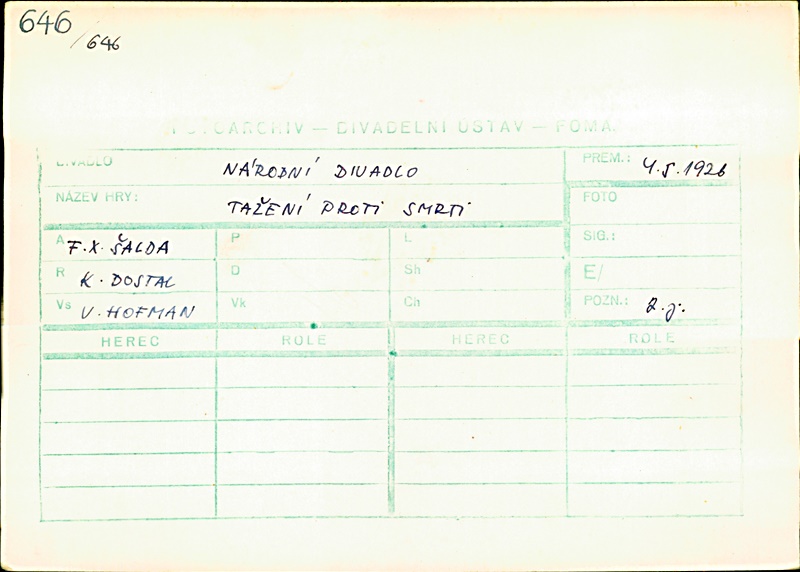 646
/646
FOTOARCHIV — DIVADELNÍ ÚSTAV — FOMA
DIVADLO NÁRODNÍ DIVADLO PREM.: 4.5.1926
NÁZEV HRY: TAŽENÍ PROTI SMRTI FOTO
A F.X. ŠALDA P L SIG.:
R K. DOSTAL D Sh E/
Vs V. HOFMAN Vk Ch POZN.: 2.j.
HEREC ROLE HEREC ROLE